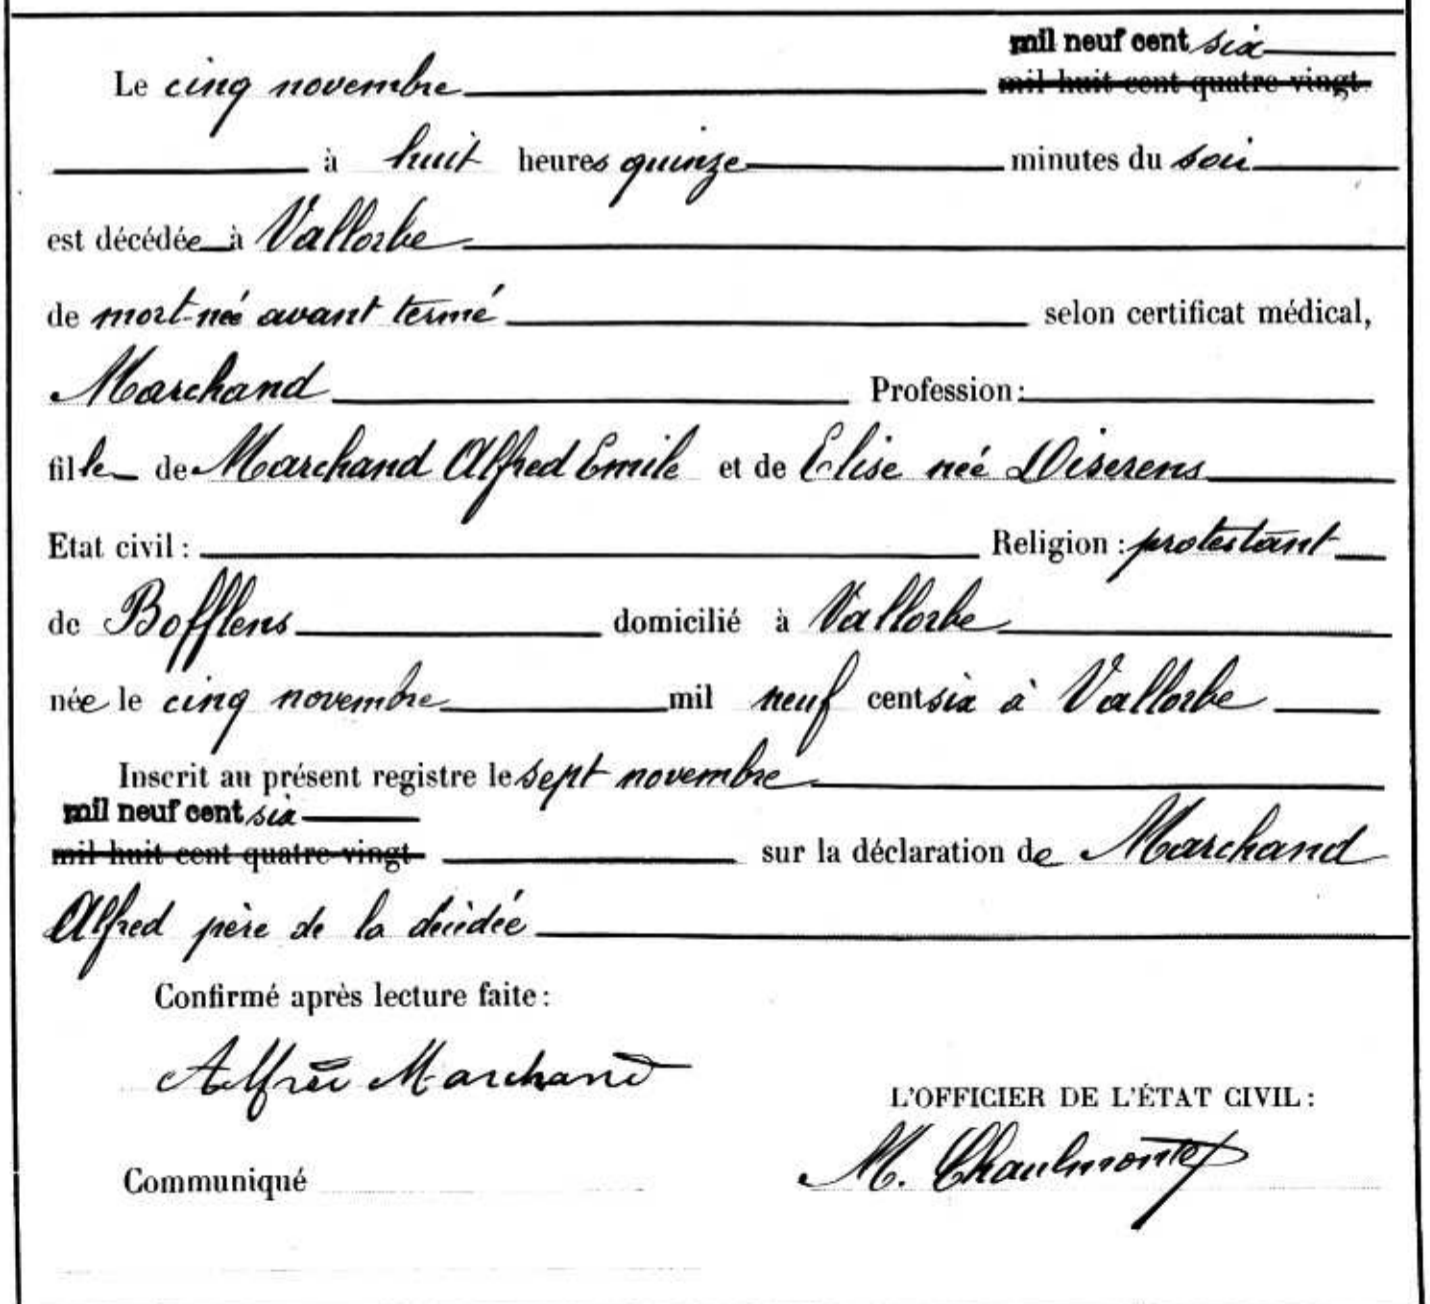 mil neuf cent six
Le cinq novembre mil huit cent quatre-vingt
à huit heures quinze minutes du soir
est décédée à Vallorbe
de mort-née avant terme selon certificat médical,
Marchand Profession :
fille de Marchand Alfred Emile et de Elise née Diserens
Etat civil : Religion : protestant
de Bofflens domicilié à Vallorbe
née le cinq novembre mil neuf cent six à Vallorbe
Inscrit au présent registre le sept novembre
mil neuf cent six
mil huit cent quatre-vingt sur la déclaration de Marchand
Alfred père de la décédée
Confirmé après lecture faite :
Alfred Marchand
L'OFFICIER DE L'ÉTAT CIVIL :
M. Chaulmontet
Communiqué